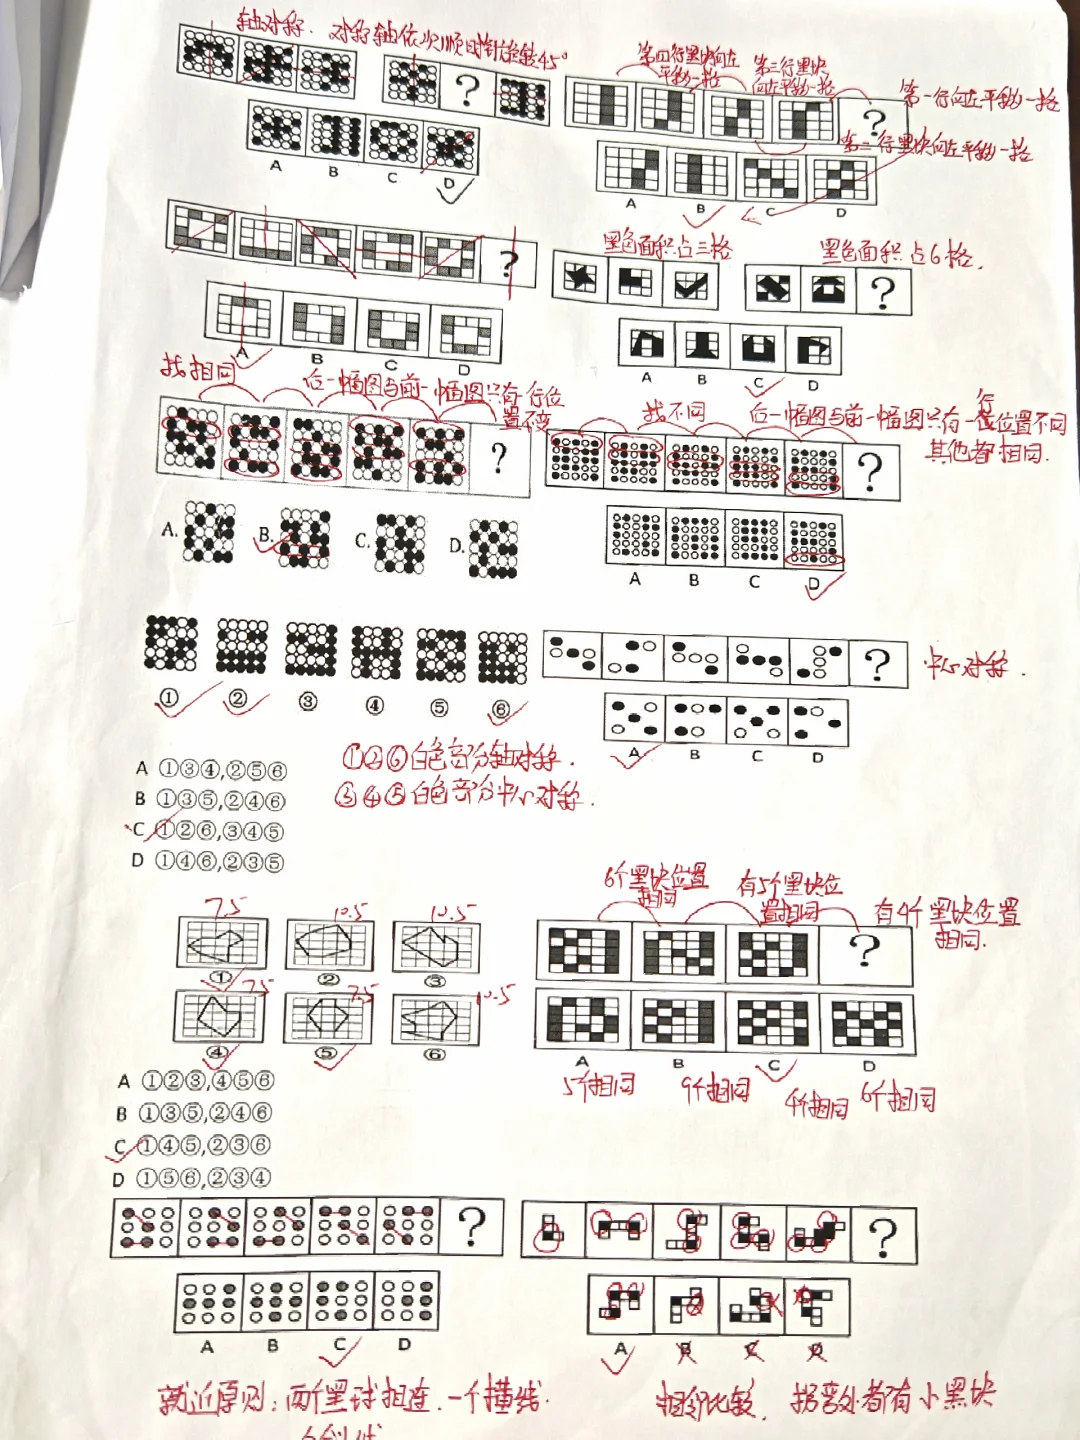 轴对称. 对称轴依次顺时针旋转45°
?
A B C D
第四行黑块向左
平移一格
第三行黑块
向左平移一格
第一行向左平移一格
?
第二行黑块向左平移一格
A B C D
?
A B C D
黑色面积占三格
黑色面积占6格.
?
A B C D
找相同
后一幅图与前一幅图只有一行位
置不变
?
A. B. C. D.
找不同
后一幅图与前一幅图只有一行位置不同
其他都相同.
?
A B C D
① ② ③ ④ ⑤ ⑥
①②⑥白色部分轴对称.
③④⑤白色部分中心对称.
A ①③④,②⑤⑥
B ①③⑤,②④⑥
C ①②⑥,③④⑤
D ①④⑥,②③⑤
?
中心对称.
A B C D
7.5 10.5 10.5
① ② ③
7.5 7.5 10.5
④ ⑤ ⑥
A ①②③,④⑤⑥
B ①③⑤,②④⑥
C ①④⑤,②③⑥
D ①⑤⑥,②③④
6个黑块位置
相同
有5个黑块位
置相同
有4个黑块位置
相同.
?
A B C D
5个相同 9个相同 4个相同 6个相同
?
A B C D
就近原则:两个黑球相连.一个横线.
?
A B C D
相邻比较, 拐弯处都有小黑块